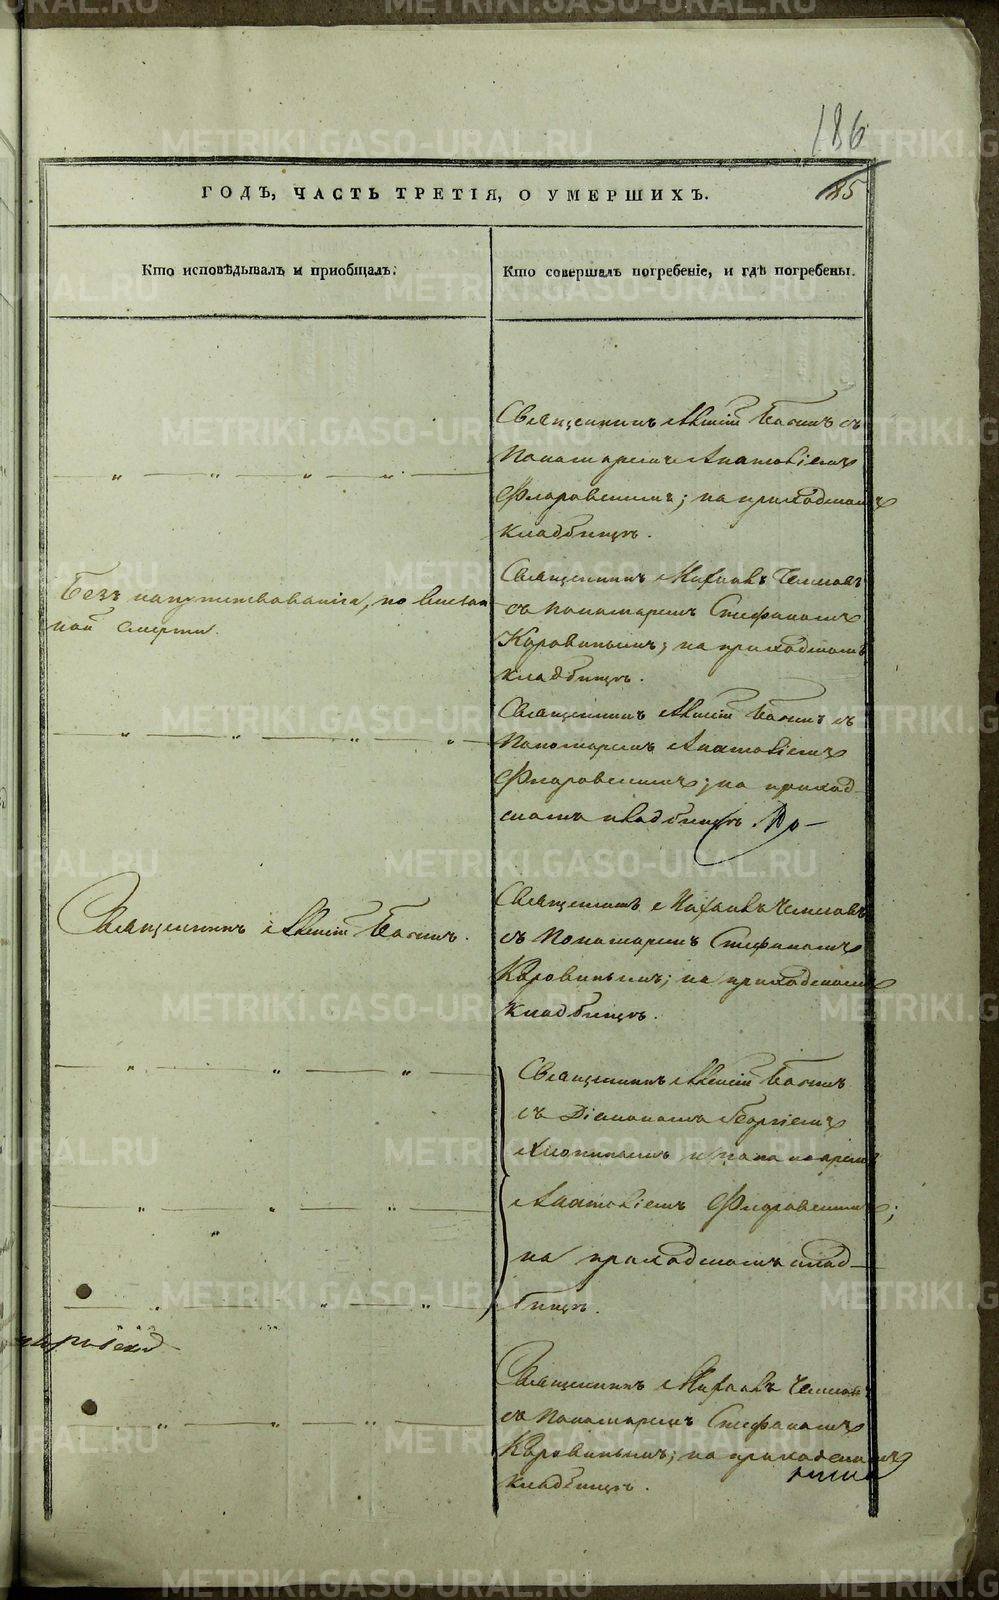 186
85
ГОДЪ, ЧАСТЬ ТРЕТІЯ, О УМЕРШИХЪ.
Кто исповѣдывалъ и пріобщалъ.
Кто совершалъ погребеніе, и гдѣ погребены.
Священникъ Алексій съ
Пономаремъ Анатоліемъ
Флоровскимъ; на приходскомъ
кладбищѣ.
Безъ напутствованія, по внезап
ной смерти.
Священникъ Михаилъ
съ пономаремъ Стефаномъ
Коровинымъ; на приходскомъ
кладбищѣ.
Священникъ Алексій съ
Пономаремъ Анатоліемъ
Флоровскимъ; на приход
скомъ кладбищѣ.
Священникъ Алексій
Священникъ Михаилъ
съ Пономаремъ Стефаномъ
Коровинымъ; на приходскомъ
кладбищѣ.
Священникъ Алексій
съ Діакономъ Георгіемъ
Хлопинымъ и
Анатоліемъ Флоровскимъ;
на приходскомъ клад-
бищѣ.
Священникъ Михаилъ
съ Пономаремъ Стефаномъ
Коровинымъ; на приходскомъ
кладбищѣ.
METRIKI.GASO-URAL.RU